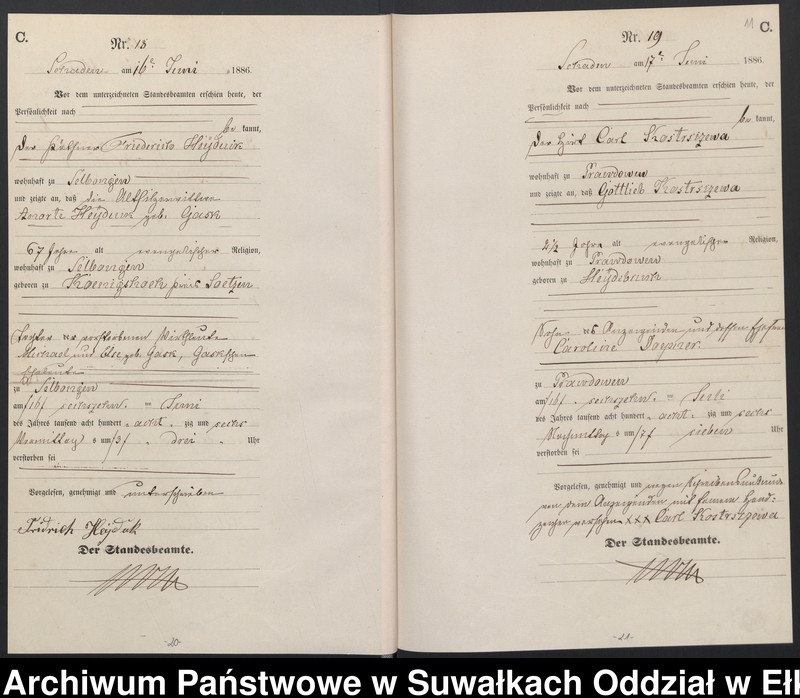 C.
Nr. 18
Schaden am 16ten Juni 1886.
Vor dem unterzeichneten Standesbeamten erschien heute, der
Persönlichkeit nach
be kannt,
der Käthner Friederich Heyduck
wohnhaft zu Selbongen
und zeigte an, daß die Altsitzerwittwe
Heyduck geb. Gask
67 Jahre alt evangelischer Religion,
wohnhaft zu Selbongen
geboren zu Kreis Loetzen
Tochter des verstorbenen Wirthsleute
Michael und Else geb. Gask, Gaskschen
Eheleute
zu Selbongen
am 16 sechszehnten Juni
des Jahres tausend acht hundert acht zig und sechs
Vormittag s um 3 drei Uhr
verstorben sei
Vorgelesen, genehmigt und unterschrieben
Fridrich Heyduk
Der Standesbeamte.
-20-
11 C.
Nr. 19
Schaden am 17ten Juni 1886.
Vor dem unterzeichneten Standesbeamten erschien heute, der
Persönlichkeit nach
be kannt,
der Hirt Carl Kostrszewa
wohnhaft zu Prawdowen
und zeigte an, daß Gottlieb Kostrszewa
2½ Jahre alt evangelischer Religion,
wohnhaft zu Prawdowen
geboren zu Heydebruch
Sohn des Anzeigenden und dessen Ehefrau
Caroline
zu Prawdowen
am 16 sechszehnten
des Jahres tausend acht hundert acht zig und sechs
Nachmittag s um 7 sieben Uhr
verstorben sei
Vorgelesen, genehmigt und wegen Schreibensunkunde
von dem Anzeigenden mit seinem Hand-
zeichen versehen XXX Carl Kostrszewa
Der Standesbeamte.
-21-
Archiwum Państwowe w Suwałkach Oddział w Eł